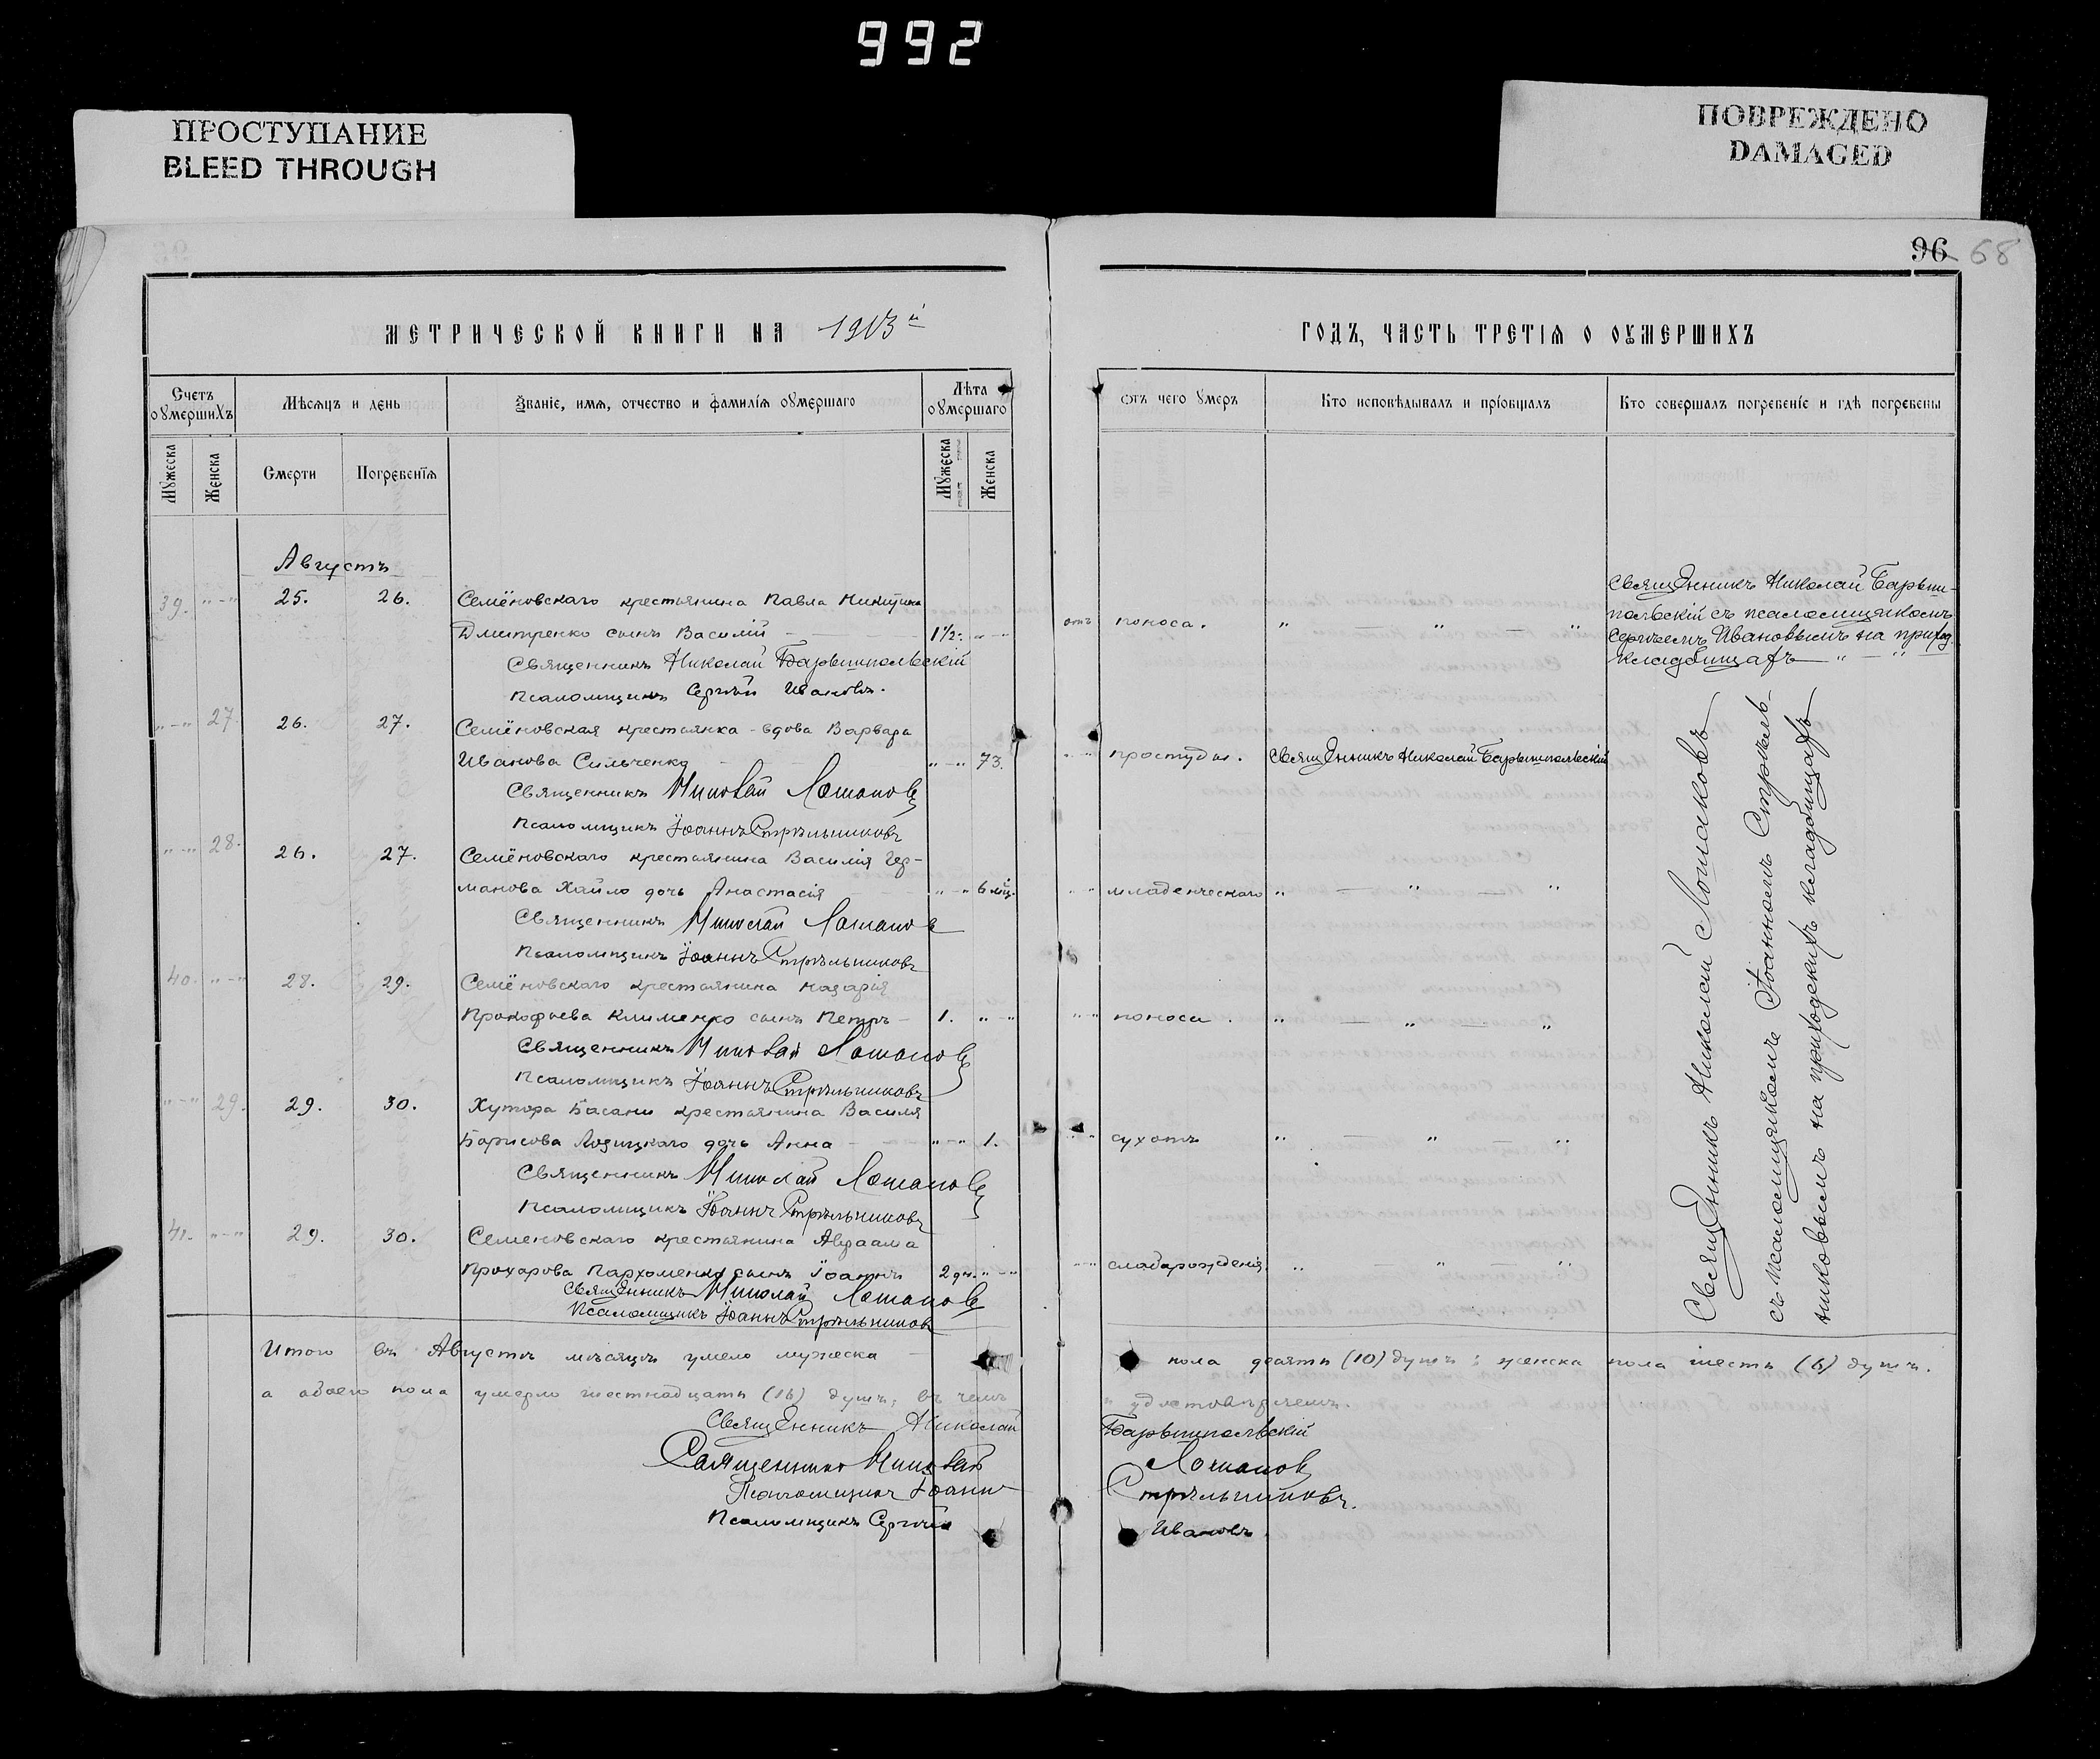 992
ПРОСТУПАНИЕ
BLEED THROUGH
ПОВРЕЖДЕНО
DAMAGED
96 68
МЕТРИЧЕСКОЙ КНИГИ НА 1913й
ГОДЪ, ЧАСТЬ ТРЕТІЯ О ОУМЕРШИХЪ
Счетъ оумершихъ
Мѣсяцъ и день
Званіе, имя, отчество и фамилія оумершаго
Лѣта оумершаго
Отъ чего умеръ
Кто исповѣдывалъ и пріобщалъ
Кто совершалъ погребеніе и гдѣ погребены
Мужеска
Женска
Смерти
Погребенія
Мужеска
Женска
Августъ
39. "-" 25. 26. Семёновскаго крестьянина Павла Никитина
Дмитренко сынъ Василій 1½. "-" отъ поноса. " — " — "
Священникъ Николай Барышпольскій
Псаломщикъ Сергѣй Ивановъ.
Священникъ Николай Барыш-
польскій съ псаломщикомъ
Сергѣемъ Ивановымъ на приход.
кладбищахъ — " — "
"-" 27. 26. 27. Семёновская крестьянка - вдова Варвара
Иванова Сильченко "-" 73. "-" простуды. Священникъ Николай Барышпольскій
Священникъ Николай Лошаковъ
Псаломщикъ Іоаннъ Стрѣльниковъ
"-" 28. 26. 27. Семёновскаго крестьянина Василія Гер-
манова Хайло дочь Анастасія "-" 6 мц. "-" младенческаго " — " — "
Священникъ Николай Лошаковъ
Псаломщикъ Іоаннъ Стрѣльниковъ
40. "-" 28. 29. Семёновскаго крестьянина Назарія
Прокофьева Клименко сынъ Петръ 1. "-" "-" поноса. " — " — "
Священникъ Николай Лошаковъ
Псаломщикъ Іоаннъ Стрѣльниковъ
"-" 29. 29. 30. Хутора Басани крестьянина Василія
Борисова дочь Анна "-" 1. "-" сухотъ " — " — "
Священникъ Николай Лошаковъ
Псаломщикъ Іоаннъ Стрѣльниковъ
41. "-" 29. 30. Семеновскаго крестьянина Авраама
Прохорова Пархоменко сынъ Іоаннъ 2 дн. "-" "-" слаборожденія " — " — "
Священникъ Николай Лошаковъ
Псаломщикъ Іоаннъ Стрѣльниковъ
Священникъ Николай Лошаковъ
съ псаломщикомъ Іоанномъ Стрѣль-
никовымъ на приходскихъ кладбищахъ
Итого въ Августѣ мѣсяцѣ умело мужеска пола десять (10) душъ; женска пола шесть (6) душъ.
а обоего пола умерло шестнадцать (16) душъ; въ чемъ удостовѣряемъ.
Священникъ Николай Барышпольскій
Священникъ Николай Лошаковъ
Псаломщикъ Іоаннъ Стрѣльниковъ.
Псаломщикъ Сергѣй Ивановъ.